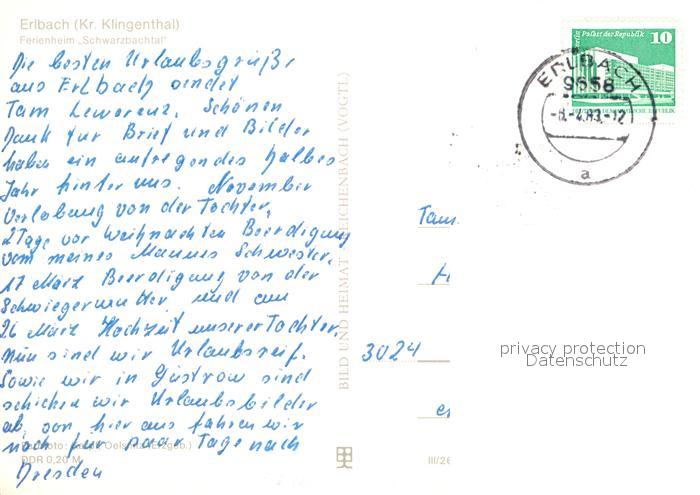 Erlbach (Kr. Klingenthal)
Ferienheim „Schwarzbachtal"
Die besten Urlaubsgrüße
aus Erlbach sendet
Fam Lewerenz. Schönen
Dank für Brief und Bilder
haben ein aufregendes halbes
Jahr hinter uns. November
Verlobung von der Tochter,
2 Tage vor Weihnachten Beerdigung
von meines Mannes Schwester,
17 März Beerdigung von der
Schwiegermutter und am
26 März Hochzeit unserer Tochter.
Nun sind wir Urlaubsreif.
Sowie wir in Güstrow sind
schicken wir Urlaubsbilder
ab, von hier aus fahren wir
noch für paar Tage nach
Dresden
Oelsnitz (Erzgeb.)
DDR 0,20 M
BILD UND HEIMAT REICHENBACH (VOGTL)
III/26
Palast der Republik 10
ERLBACH
9658
-8.-4.83.-12
a
3024
privacy protection
Datenschutz